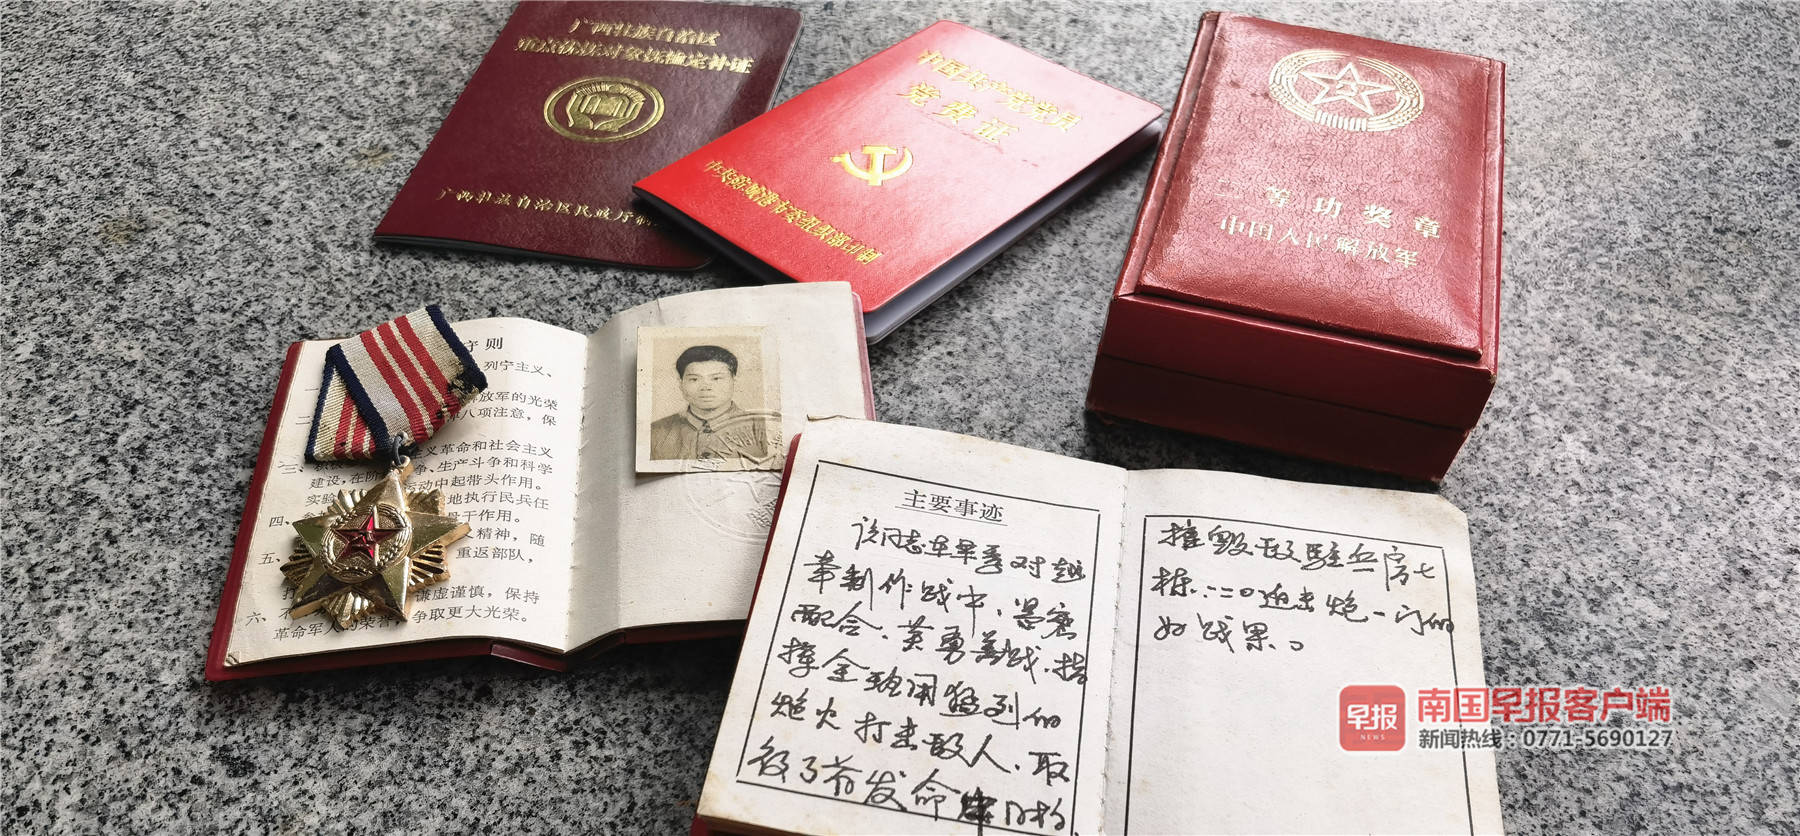 广西壮族自治区
重点优抚对象抚恤定补证
广西壮族自治区民政厅制
中国共产党党员
党费证
中共防城港市委组织部印制
等功奖章
中国人民解放军
守则
列宁主义、
放军的光荣
八项注意，保
义革命和社会主义
建设，在阶 争、生产斗争和科学
实验 运动中起带头作用。
四、 地执行民兵任
骨干作用。
五、 精神，随
重返部队，
六、不 谦虚谨慎，保持
革命军人的荣誉，争取更大光荣。
主要事迹
该同志在旱季对越
牵制作战中，紧密
配合，英勇善战，指
挥全班用猛烈的
炮火打击敌人，取
得了首发命中目标
摧毁敌驻兵房七
栋，一二〇迫击炮一门的
好战果。
早报
NEWS
南国早报客户端
新闻热线：0771-5690127